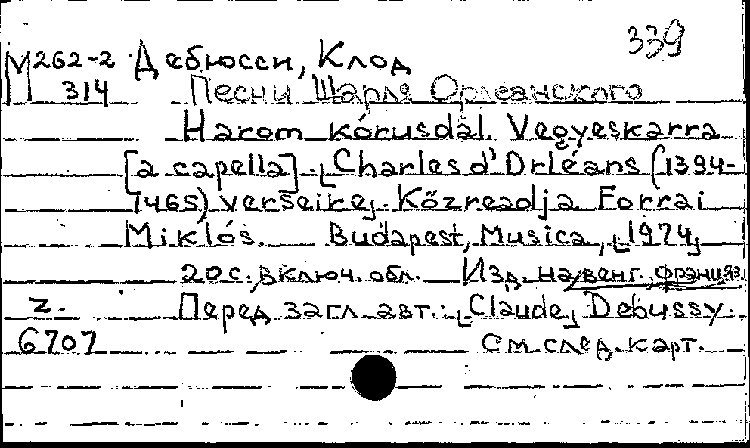 339
М262-2 Дебюсси, Клод
314 Песни Шарля Орлеанского
Három kórusdal Vegyeskarra
[a capella]. ⌞Charles d'Orléans (1394-
1465) verseire⌟. Közreadja Forrai
Miklós. Budapest, Musica, ⌞1974⌟
20 с., включ. обл. Изд. на венг., франц. яз.
Z. Перед загл. авт.: ⌞Claude⌟ Debussy.
6707 См. след. карт.